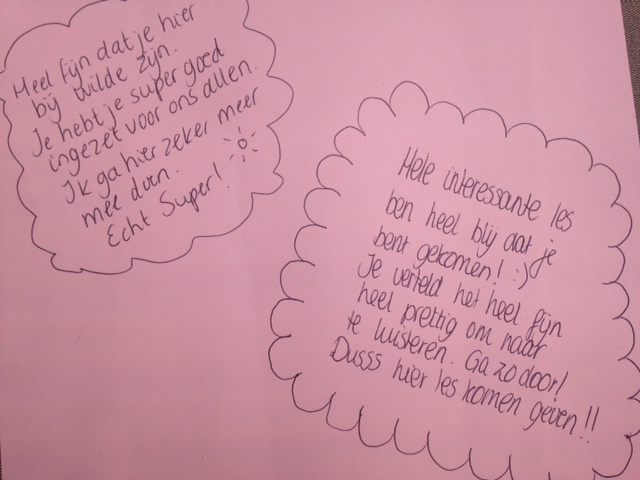 Heel fijn dat je hier
bij wilde zijn.
Je hebt je super goed
ingezet voor ons allen.
Ik ga hier zeker meer
mee doen.
Echt Super!
Hele interessante les
ben heel blij dat je
bent gekomen! :)
Je verteld het heel fijn
heel prettig om naar
te luisteren. Ga zo door!
Dusss hier les komen geven!!